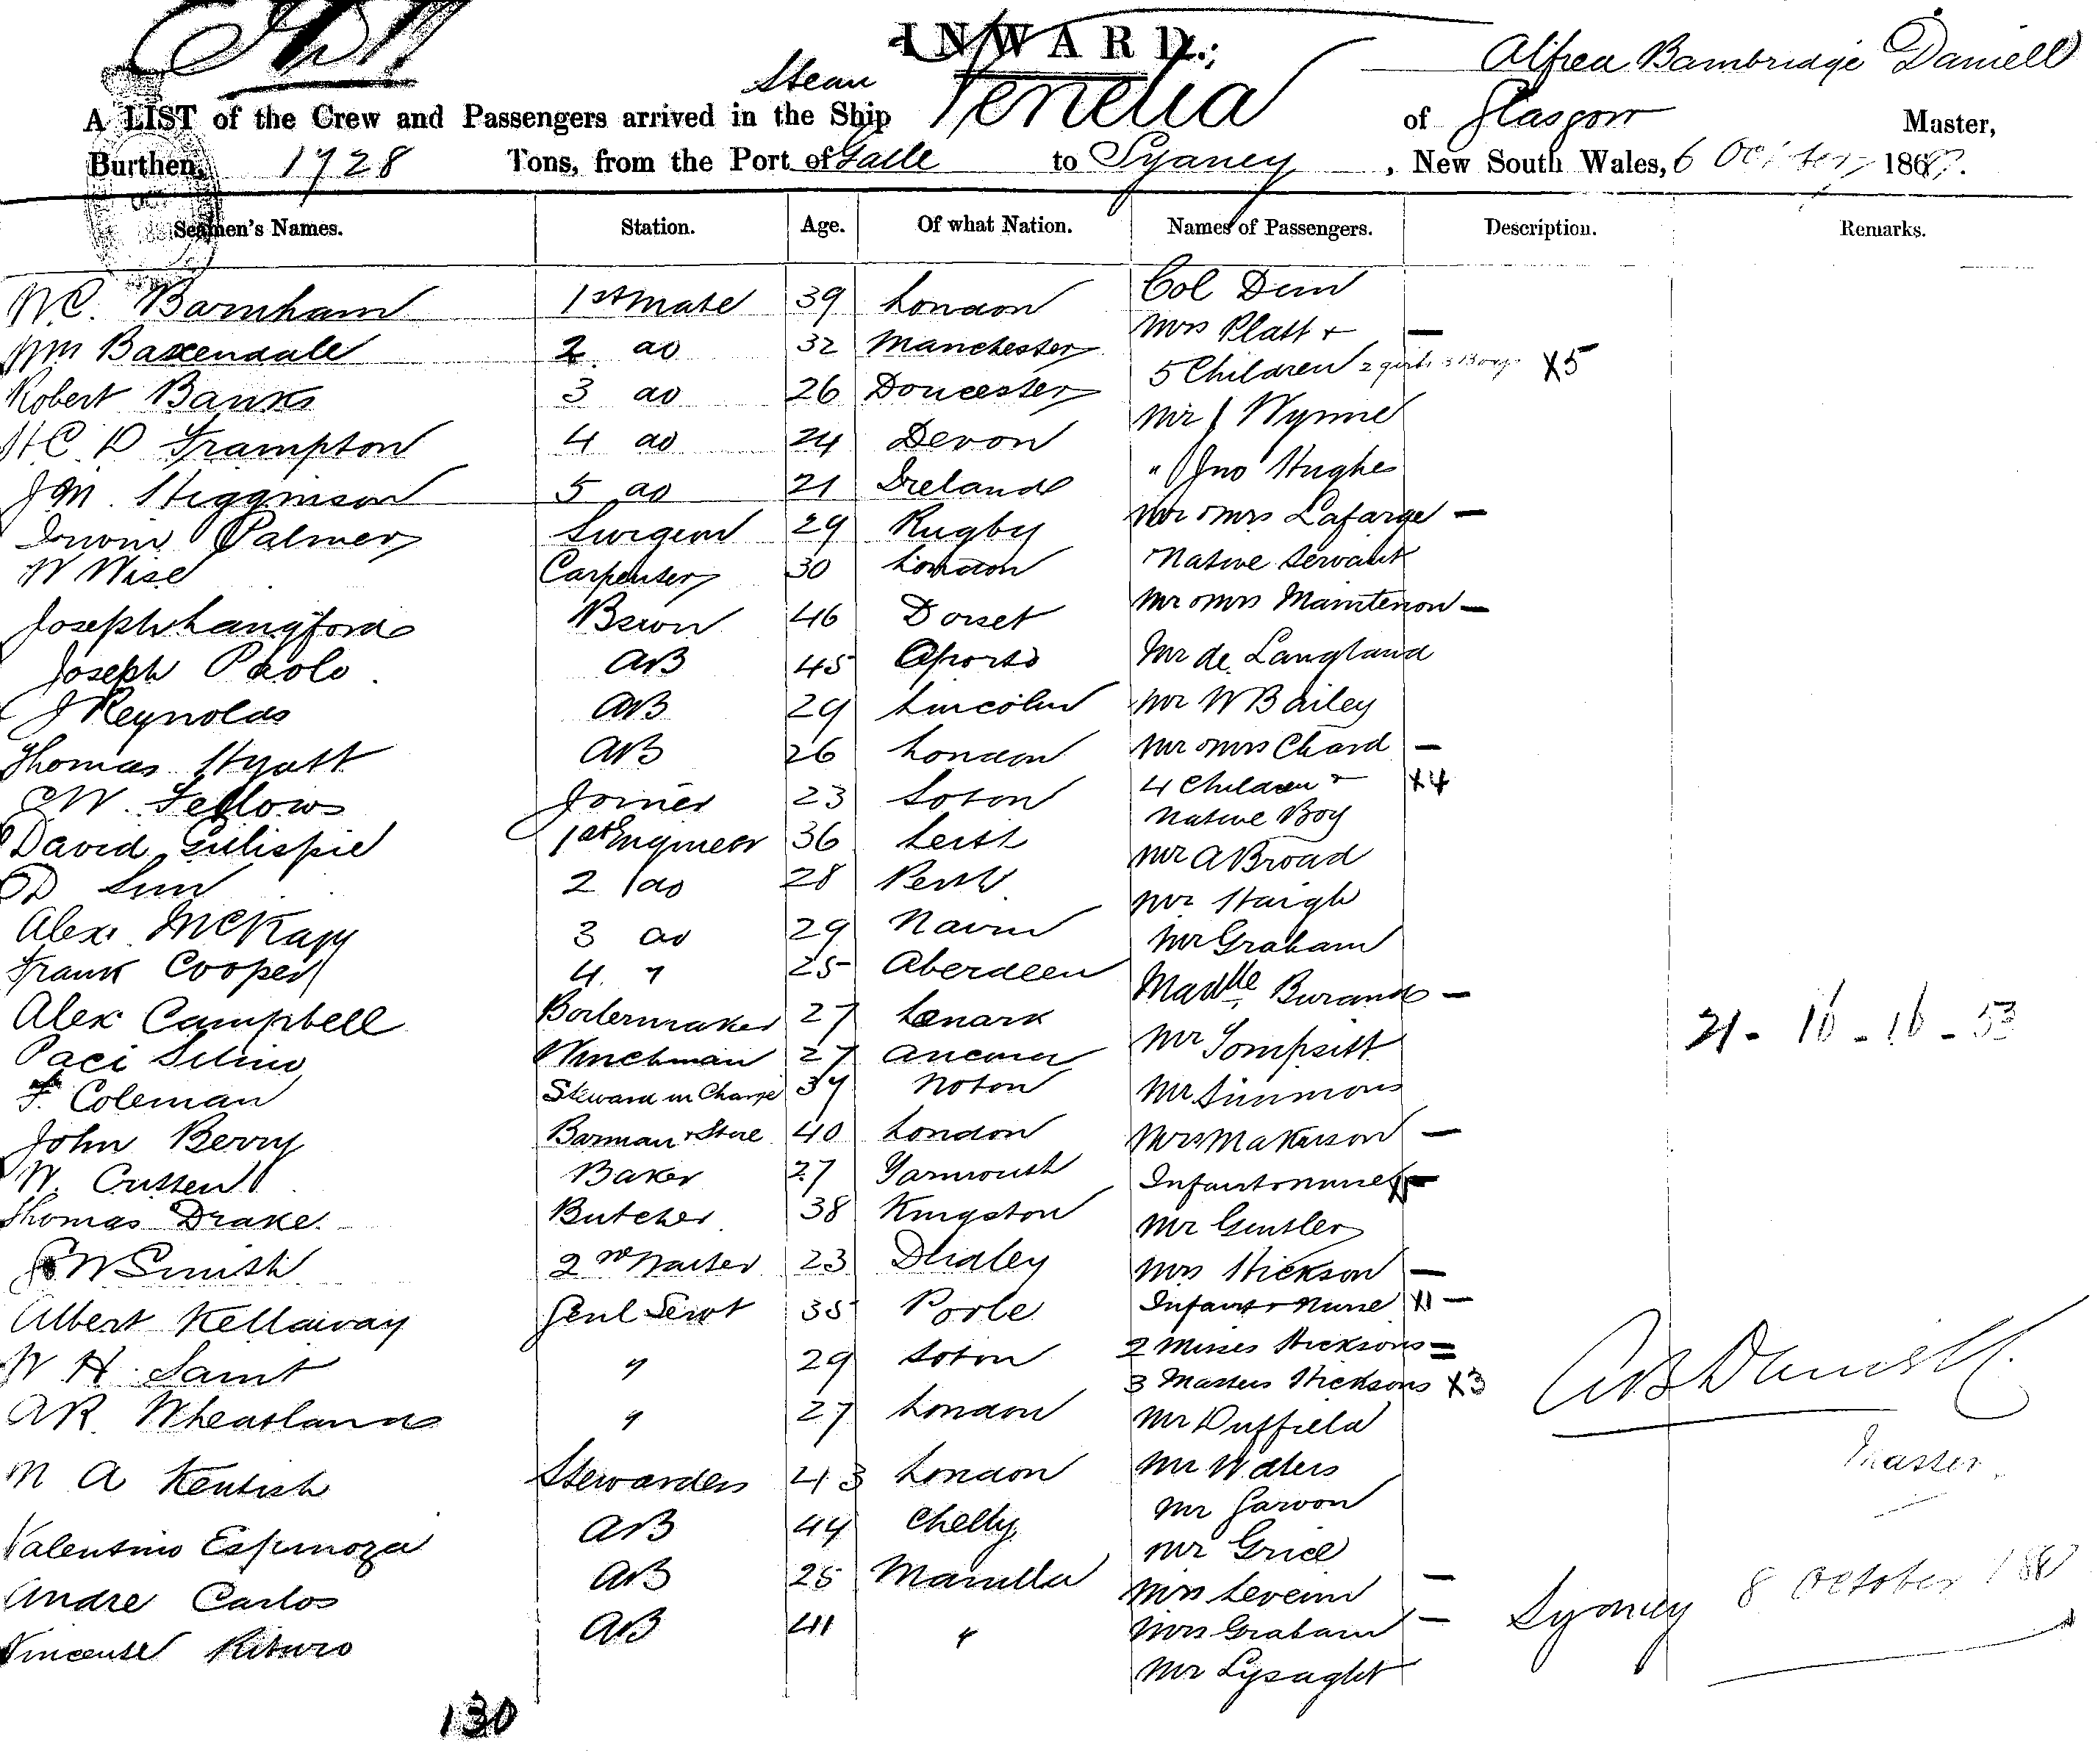 INWARD.
Alfred Bambridge Daniell
Steam
A LIST of the Crew and Passengers arrived in the Ship Venetia of Glasgow Master,
Burthen, 1728 Tons, from the Port of Galle to Sydney, New South Wales, 6 October 186
Seamen's Names. Station. Age. Of what Nation. Names of Passengers. Description. Remarks.
W.C. Barnham 1st Mate 39 London Col Dun
Wm Baxendale 2 do 32 Manchester Mrs Platt + —
5 Children 2 girls 3 Boys X5
Robert Banks 3 do 26 Doucester Mr J Wynne
H C D Frampton 4 do 24 Devon " Jno Hughes
J M. Higginson 5 do 21 Ireland Mr & Mrs Lafarge —
Irwin Palmer Surgeon 29 Rugby Native Servant
W Wise Carpenter 30 London Mr & Mrs Maintenon —
Joseph Langford Bswn 46 Dorset Mr de Langland
Joseph Paolo AB 45 Oporto Mr W Bailey
J Reynolds AB 29 Lincoln Mr & Mrs Chard —
Thomas Hyatt AB 26 London 4 Children + X4
C W. Fellows Joiner 23 Soton Native Boy
David Gillispie 1st Engineer 36 Leith Mr A Broad
D 2 do 28 Perth Mr Haigh
Alex. McKay 3 do 29 Nairn Mr Graham
Frank Cooper 4 " 25 Aberdeen Madlle Burand —
Alex Campbell Boilermaker 27 Lanark Mr Tompsitt 21 - 16 - 16 - 53
Paci Silino Winchman 27 Ancona Mr Simmons
F. Coleman Steward in Charge 37 Noton Mrs Makinson —
John Berry Barman & Store 40 London Infant & nurse —
W. Cussen Baker 27 Yarmouth Mr Gentler
Thomas Drake Butcher 38 Kingston Mrs Hickson —
W Smith 2nd Waiter 23 Dudley Infant & Nurse X1 —
Albert Kellaway Genl Servt 35 Poole 2 Misses Hicksons =
W H Saint " 29 Soton 3 Masters Hicksons X3
A B Daniell
A R Wheatland " 27 London Mr Duffield
Master
M A Kentish Stewardess 43 London Mr Waters
Mr Garvon
Valentino Espinoza AB 44 Chelly Mr Grice
Andre Carlos AB 25 Manilla Mrs Leveim —
Sydney 8 October 188
Vincente AB 41 " Mrs Graham —
Mr Lysaght
130